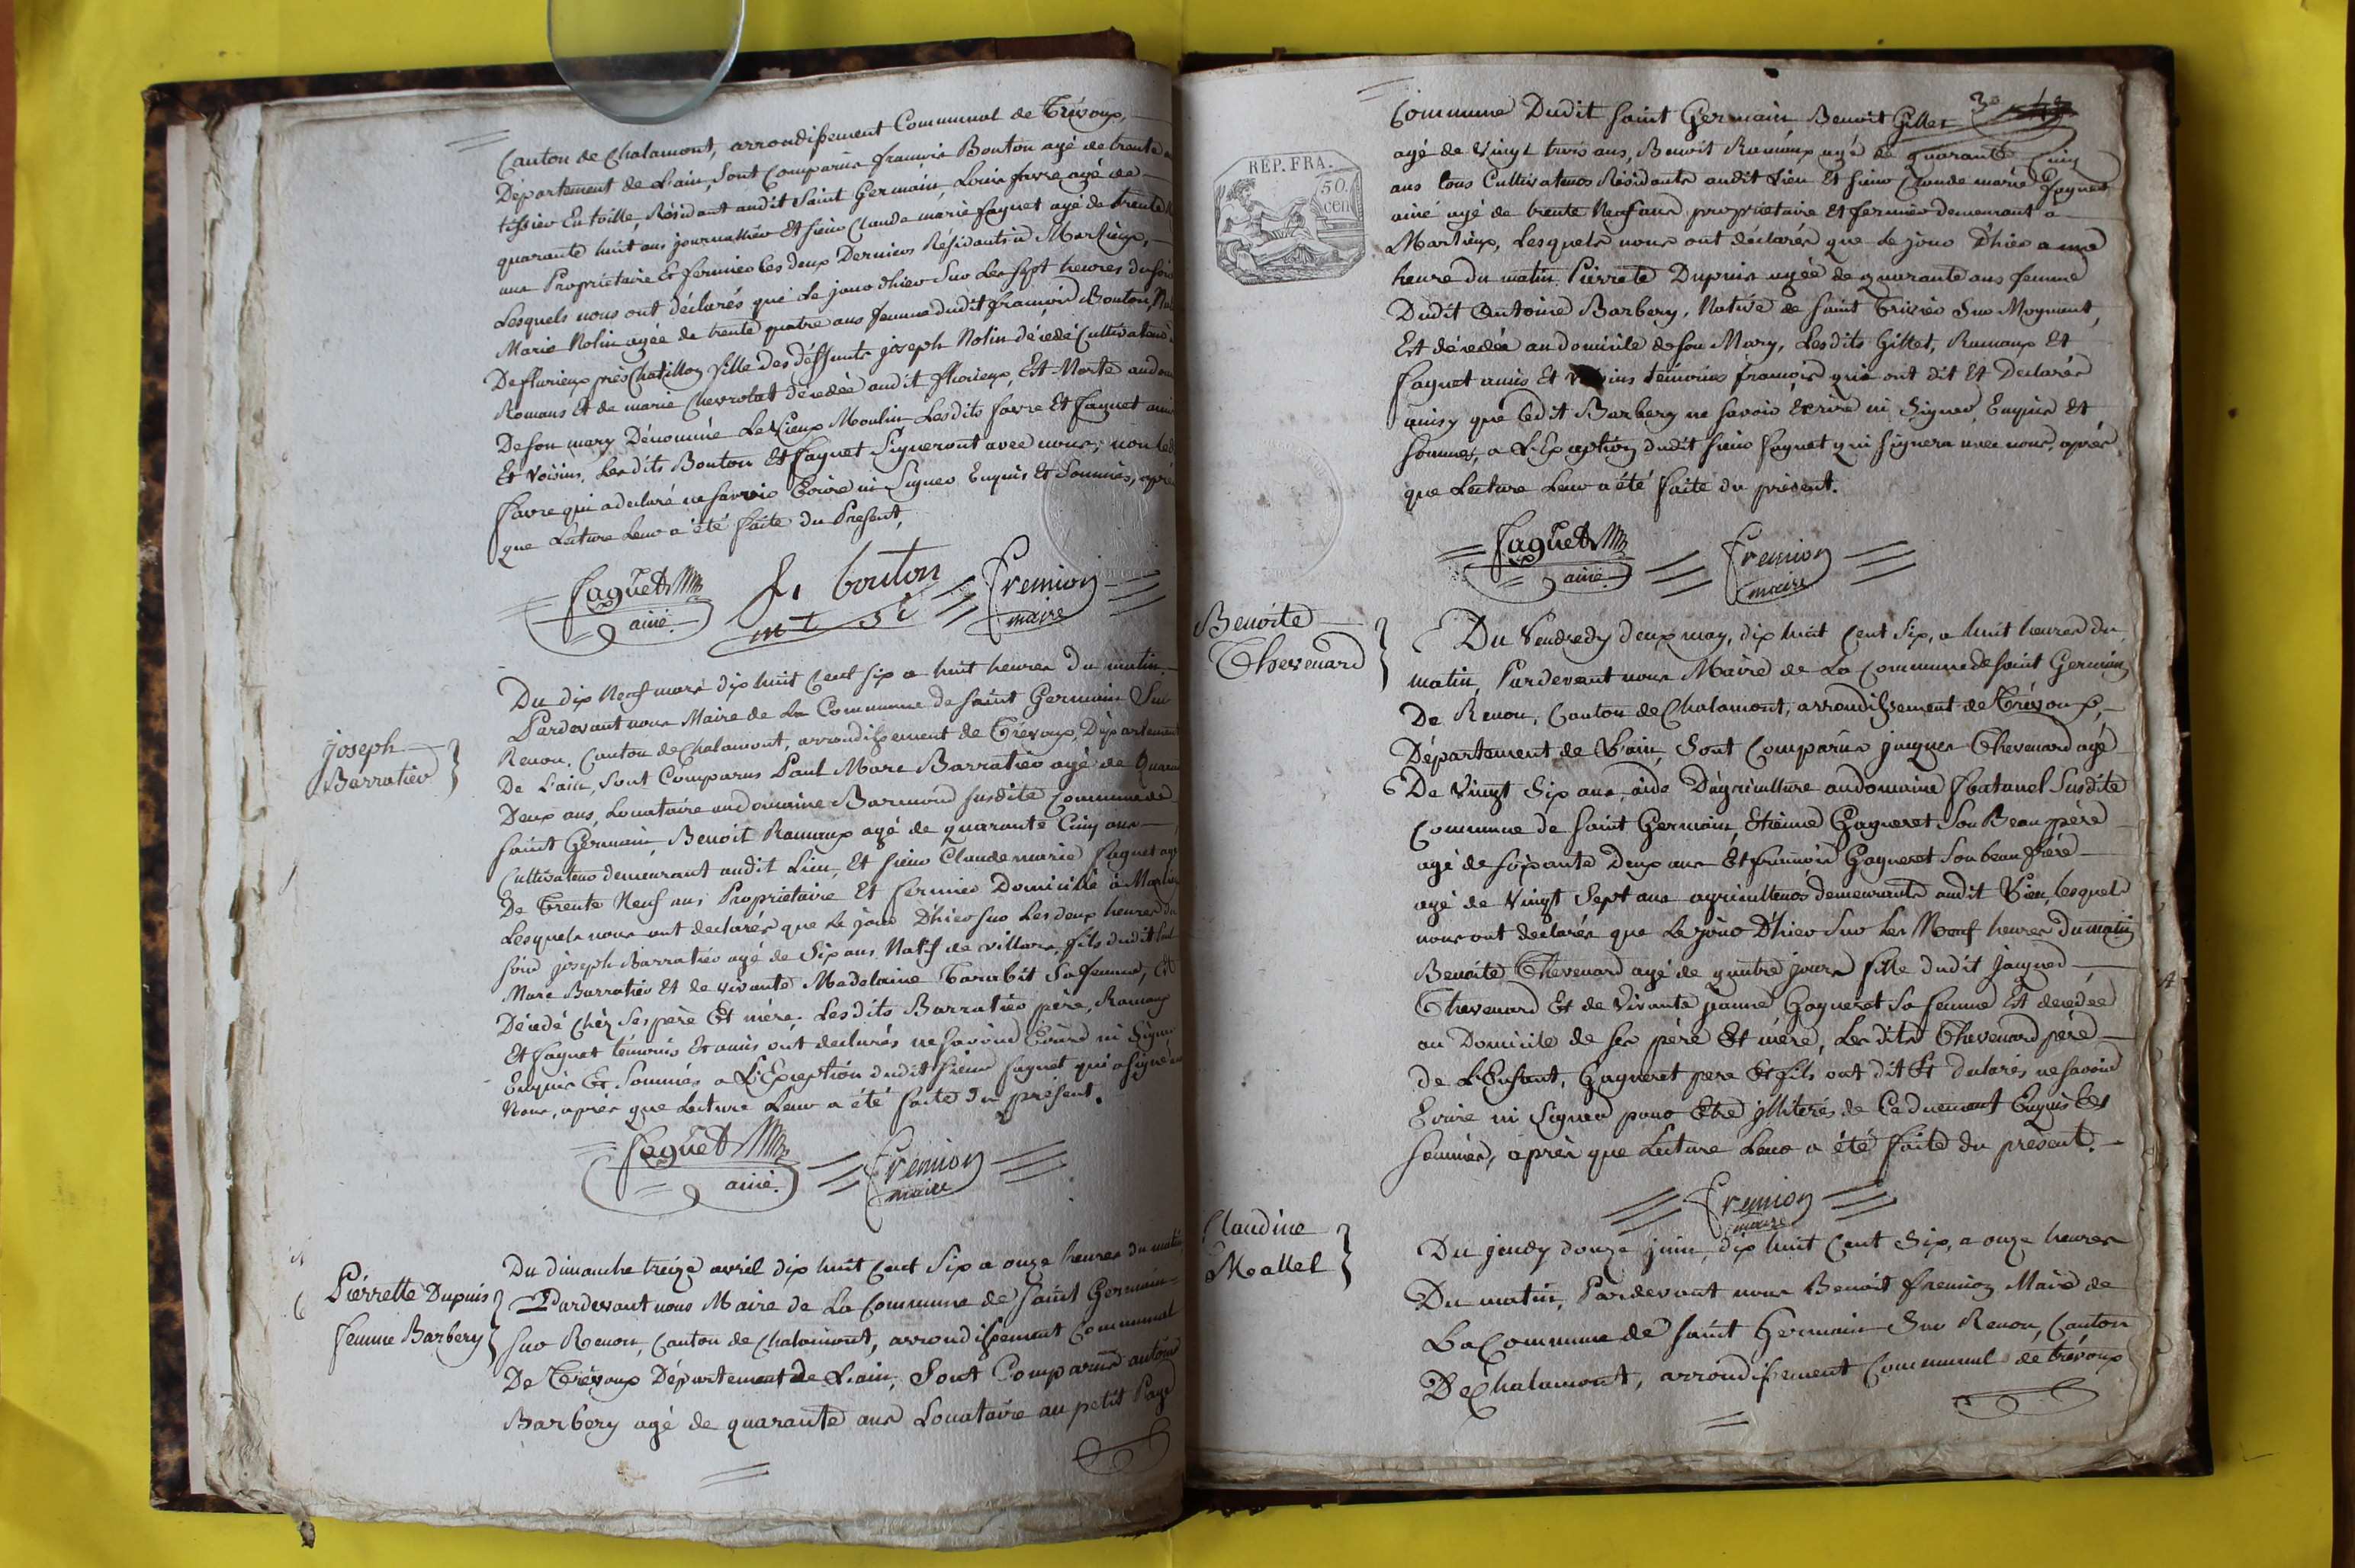 Canton de Chalamont, arrondissement Communal de Trévoux,
Département de L'ain, Sont Comparus francois Bouton agé de trente
tissier En toille, Résidant audit Saint Germain, Louis favre agé de
quarante huit ans journallier Et sieur Claude marie faguet agé de trente
ans Propriétaire Et fermier les deux Derniers Résidants à Marlieux,
Lesquels nous ont déclarés que le jour d'hier Sur Les sept heures du soir
Marie Nolin agée de trente quatre ans femme dudit francois Bouton,
De flurieux près Chatillon fille des déffunts joseph Nolin décédé Cultivateur
Romans Et de marie Chevrolat décédée audit flurieux, Est Morte au
De son mary Dénommé Le Vieux Moulin Lesdits favre Et faguet amis
Et Voisins. Lesdits Bouton Et faguet Signeront avec nous, non led
favre qui a declaré ne savoir Ecrire ni Signer Enquis Et Sommés, après
que Lecture Leur a été faite du Présent,
faguet ainé f. bouton fremion maire
joseph
Barratier
Du dix Neuf mars dix huit Cent six a huit heures du matin
Pardevant nous Maire de La Commune de saint Germain Sur
Renon, Canton de Chalamont, arrondissement de Trévoux, Département
De L'ain, Sont Comparus Paul Marc Barratier agé de Quarante
Deux ans, Locataire au domaine susdite Commune de
saint Germain, Benoit Ramoux agé de quarante Cinq ans
Cultivateur demeurant audit Lieu, Et sieur Claude marie faguet agé
De Trente Neuf ans Propriétaire Et fermier Domicilié à Marlieux
Lesquels nous ont declarés que Le jour D'hier sur Les deux heures du
soir joseph Barratier agé de Six ans Natif de villars, fils dudit Paul
Marc Barratier Et de vivante Madelaine Tarabit Sa femme, Est
Décédé Chèz Ses père Et mère. Lesdits Barratier père, Ramoux
Et faguet témoins Et amis ont declarés ne savoir Ecrire ni Signer
Enquis Et Sommés a L'Exception dudit sieur faguet qui a signé avec
Nous, après que Lecture Leur a été faite du présent.
faguet ainé fremion maire
Piérrette Dupuis
femme Barbery
Du dimanche treize avril dix huit Cent Six a onze heures du matin
Pardevant nous Maire de La Commune de saint Germain
sur Renon, Canton de Chalamont, arrondissement Communal
De Trévoux Département de L'ain, Sont Comparus antoine
Barbery agé de quarante ans Locataire au petit Page
30
Commune Dudit saint Germain Benoit Gillet
agé de Vingt trois ans, Benoit Ramoux agé de quarante Cinq
ans tous Cultivateurs Résidants audit Lieu Et sieur Claude marie faguet
ainé agé de trente Neuf ans propriétaire Et fermier demeurant a
Marlieux, Lesquels nous ont déclarés que Le jour D'hier a une
heure du matin Piérrete Dupuis agée de quarante ans femme
Dudit Antoine Barbery, Native de saint Trivier Sur Mognent,
Est décédée au domicile de son Mary, Lesdits Gillet, Ramoux Et
faguet amis Et voisins témoins francois qui ont dit Et Declarés
ainsy que Ledit Barbery ne savoir Ecrire ni Signer, Enquis Et
sommés, a L'Exception dudit sieur faguet qui signera avec nous, après
que Lecture Leur a été faite du présent.
faguet ainé fremion maire
REP. FRA.
50.
cen
Benoite
Thevenard
Du Vendredy deux may, dix huit Cent Six, a huit heures du
matin, Pardevant nous Maire de La Commune de saint Germain
De Renon, Canton de Chalamont, arrondissement de Trévoux,
Département de L'ain, Sont Comparus jaques Thevenard agé
De Vingt Six ans, aide D'agriculture au domaine Susdite
Commune de saint Germain, Etienne Gagneret Son Beau père
agé de soixante Deux ans Et francois Gagneret Son beau frère
agé de Vingt Sept ans agriculteurs demeurants audit Lieu, Lesquels
nous ont declarés que Le jour D'hier Sur Les Neuf heures du matin
Benoite Thevenard agé de quatre jours fille dudit jaques
Thevenard Et de Vivante jeanne Gagneret Sa femme Est décédée
au Domicile de ses père Et mère, Lesdits Thevenard père
de L'Enfant, Gagneret pere Et fils ont dit Et declarés ne savoir
Ecrire ni Signer pour Etre illiterés de Ce duement Enquis Et
sommés, après que Lecture Leur a été faite du présent.
fremion maire
Claudine
Mallet
Du jeudy douze juin, dix huit Cent Six, a onze heures
Du matin, Pardevant nous Benoit fremion Maire de
La Commune de saint Germain Sur Renon, Canton
De Chalamont, arrondissement Communal de trévoux